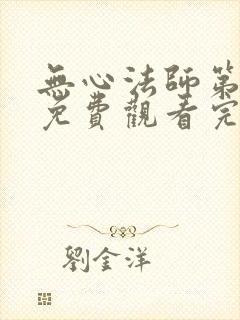 無心法師第
免費觀看完
劉金洋